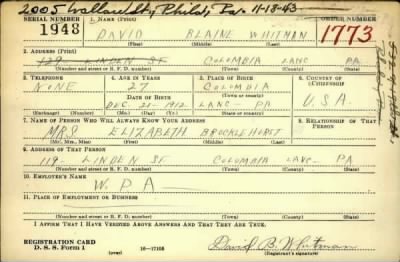 2005 Wallace St, Philad, Pa. 11-18-43
SERIAL NUMBER 1. NAME (Print) ORDER NUMBER
1948 DAVID BLAINE WHITMAN 1773
(First) (Middle) (Last)
2. ADDRESS (Print)
129 LINDEN ST COLOMBIA LANC PA
(Number and street or R. F. D. number) (Town) (County) (State)
3. TELEPHONE 4. AGE IN YEARS 5. PLACE OF BIRTH 6. COUNTRY OF CITIZENSHIP
NONE 27 COLOMBIA
DATE OF BIRTH (Town or county)
DEC-21-1912 LANC-PA U.S.A.
(Exchange) (Number) (Mo.) (Day) (Yr.) (State or country)
7. NAME OF PERSON WHO WILL ALWAYS KNOW YOUR ADDRESS 8. RELATIONSHIP OF THAT PERSON
MRS ELIZABETH BROCKLEHURST
(Mr., Mrs., Miss) (First) (Middle) (Last)
9. ADDRESS OF THAT PERSON
119- LINDEN ST COLOMBIA LANC- PA
(Number and street or R. F. D. number) (Town) (County) (State)
10. EMPLOYER'S NAME
W. P. A
11. PLACE OF EMPLOYMENT OR BUSINESS
(Number and street or R. F. D. number) (Town) (County) (State)
I AFFIRM THAT I HAVE VERIFIED ABOVE ANSWERS AND THAT THEY ARE TRUE.
REGISTRATION CARD
D. S. S. Form 1 (over) 16-17105 David B. Whitman
(Registrant's signature)